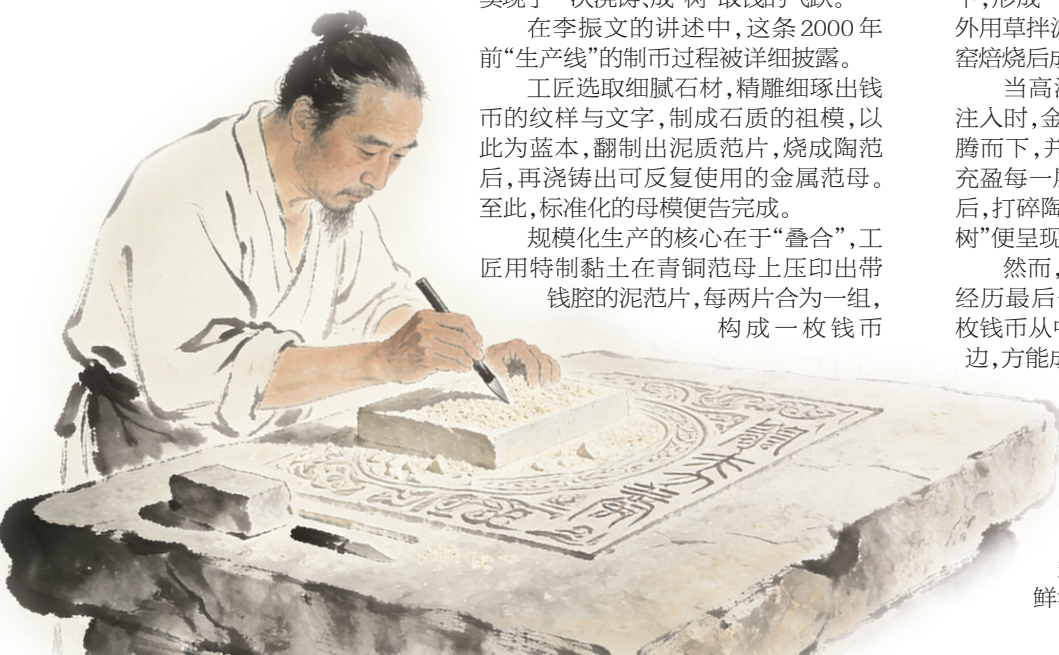 在李振文的讲述中，这条2000年
前“生产线”的制币过程被详细披露。
工匠选取细腻石材，精雕细琢出钱
币的纹样与文字，制成石质的祖模，以
此为蓝本，翻制出泥质范片，烧成陶范
后，再浇铸出可反复使用的金属范母。
至此，标准化的母模便告完成。
规模化生产的核心在于“叠合”，工
匠用特制黏土在青铜范母上压印出带
钱腔的泥范片，每两片合为一组，
构成一枚钱币
外用草拌
窑焙烧后
当高
注入时，金
腾而下，并
充盈每一
后，打碎陶
树”便呈现
然而，
经历最后
枚钱币从
边，方能
鲜